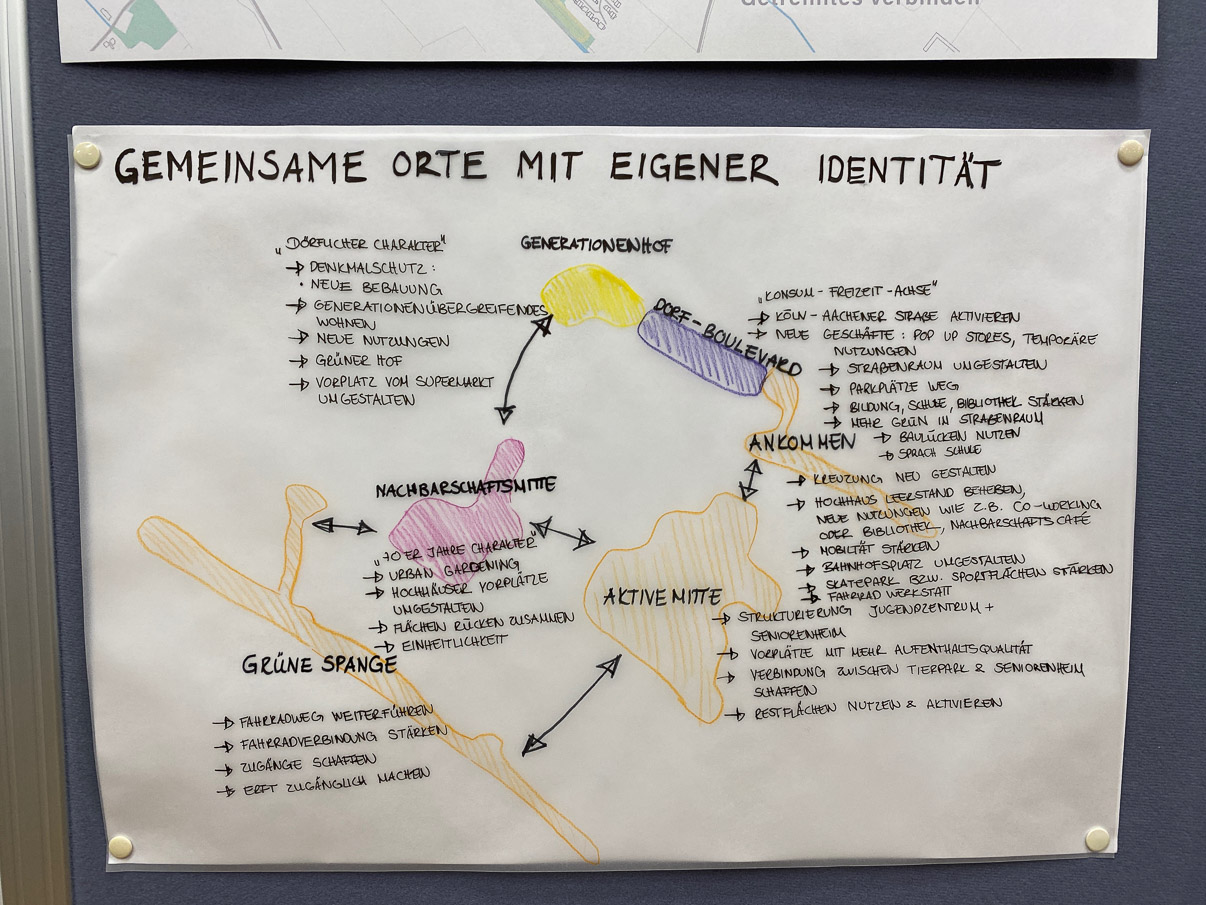 Getrenntes verbinden
GEMEINSAME ORTE MIT EIGENER IDENTITÄT
„DÖRFLICHER CHARAKTER"
→ DENKMALSCHUTZ :
• NEUE BEBAUUNG
→ GENERATIONENÜBERGREIFENDES
WOHNEN
→ NEUE NUTZUNGEN
→ GRÜNER HOF
→ VORPLATZ VOM SUPERMARKT
UMGESTALTEN
GENERATIONENHOF
DORF-BOULEVARD
„KONSUM-FREIZEIT-ACHSE"
→ KÖLN-AACHENER STRAßE AKTIVIEREN
→ NEUE GESCHÄFTE : POP UP STORES, TEMPORÄRE
NUTZUNGEN
→ STRAßENRAUM UMGESTALTEN
→ PARKPLÄTZE WEG
→ BILDUNG, SCHULE, BIBLIOTHEK STÄRKEN
→ MEHR GRÜN IN STRAßENRAUM
→ BAULÜCKEN NUTZEN
→ SPRACH SCHULE
ANKOMMEN
→ KREUZUNG NEU GESTALTEN
→ HOCHHAUS LEERSTAND BEHEBEN,
NEUE NUTZUNGEN WIE Z.B. CO-WORKING
ODER BIBLIOTHEK, NACHBARSCHAFTSCAFÉ
→ MOBILITÄT STÄRKEN
→ BAHNHOFSPLATZ UMGESTALTEN
→ SKATEPARK BZW. SPORTFLÄCHEN STÄRKEN
→ FAHRRAD WERKSTATT
NACHBARSCHAFTSMITTE
„70ER JAHRE CHARAKTER"
→ URBAN GARDENING
→ HOCHHÄUSER VORPLÄTZE
UMGESTALTEN
→ FLÄCHEN RÜCKEN ZUSAMMEN
→ EINHEITLICHKEIT
AKTIVE MITTE
→ STRUKTURIERUNG JUGENDZENTRUM +
SENIORENHEIM
→ VORPLÄTZE MIT MEHR AUFENTHALTSQUALITÄT
→ VERBINDUNG ZWISCHEN TIERPARK & SENIORENHEIM
SCHAFFEN
→ RESTFLÄCHEN NUTZEN & AKTIVIEREN
GRÜNE SPANGE
→ FAHRRADWEG WEITERFÜHREN
→ FAHRRADVERBINDUNG STÄRKEN
→ ZUGÄNGE SCHAFFEN
→ ERFT ZUGÄNGLICH MACHEN